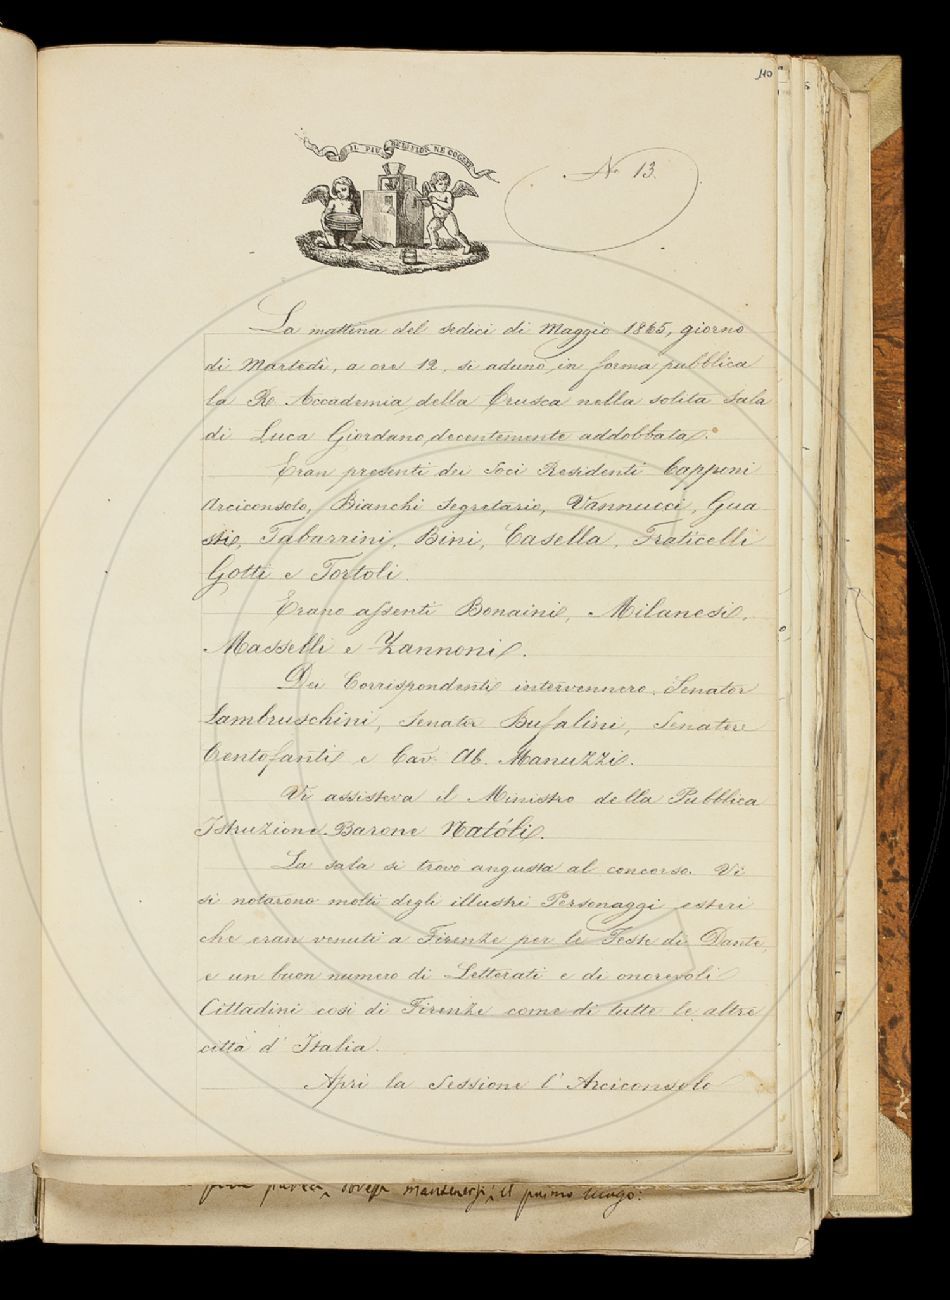 110
IL PIÙ BEL FIOR NE COGLIE
N.° 13.
La mattina del sedici di Maggio 1865, giorno
di Martedì, a ore 12, si adunò in forma pubblica
la R. Accademia della Crusca nella solita Sala
di Luca Giordano decentemente addobbata.
Eran presenti dei Soci Residenti Capponi
Arciconsolo, Bianchi Segretario, Vannucci, Gua
sti, Tabarrini, Bini, Casella, Fraticelli
Gotti e Tortoli.
Erano assenti Bonaini, Milanesi,
Masselli e Zannoni.
Dei Corrispondenti intervennero Senator
Lambruschini, Senator Bufalini, Senatore
Centofanti e Cav. Ab. Manuzzi.
Vi assisteva il Ministro della Pubblica
Istruzione Barone Natóli.
La sala si trovò angusta al concorso. Vi
si notarono molti degli illustri Personaggi esteri
che eran venuti a Firenze per le Feste di Dante,
e un buon numero di Letterati e di onorevoli
Cittadini così di Firenze come di tutte le altre
città d'Italia.
Aprì la Sessione l'Arciconsolo
mantenersi il primo luogo: